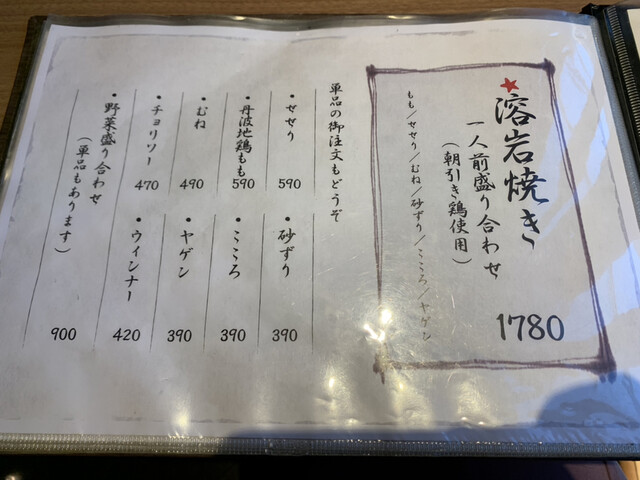 ★溶岩焼き
一人前盛り合わせ
（朝引き鶏使用）
1780
もも／せせり／むね／砂ずり／こころ／ヤゲン
単品の御注文もどうぞ
・せせり 590
・砂ずり 390
・丹波地鶏もも 590
・こころ 390
・むね 490
・ヤゲン 390
・チョリソー 470
・ウィンナー 420
・野菜盛り合わせ 900
（単品もあります）